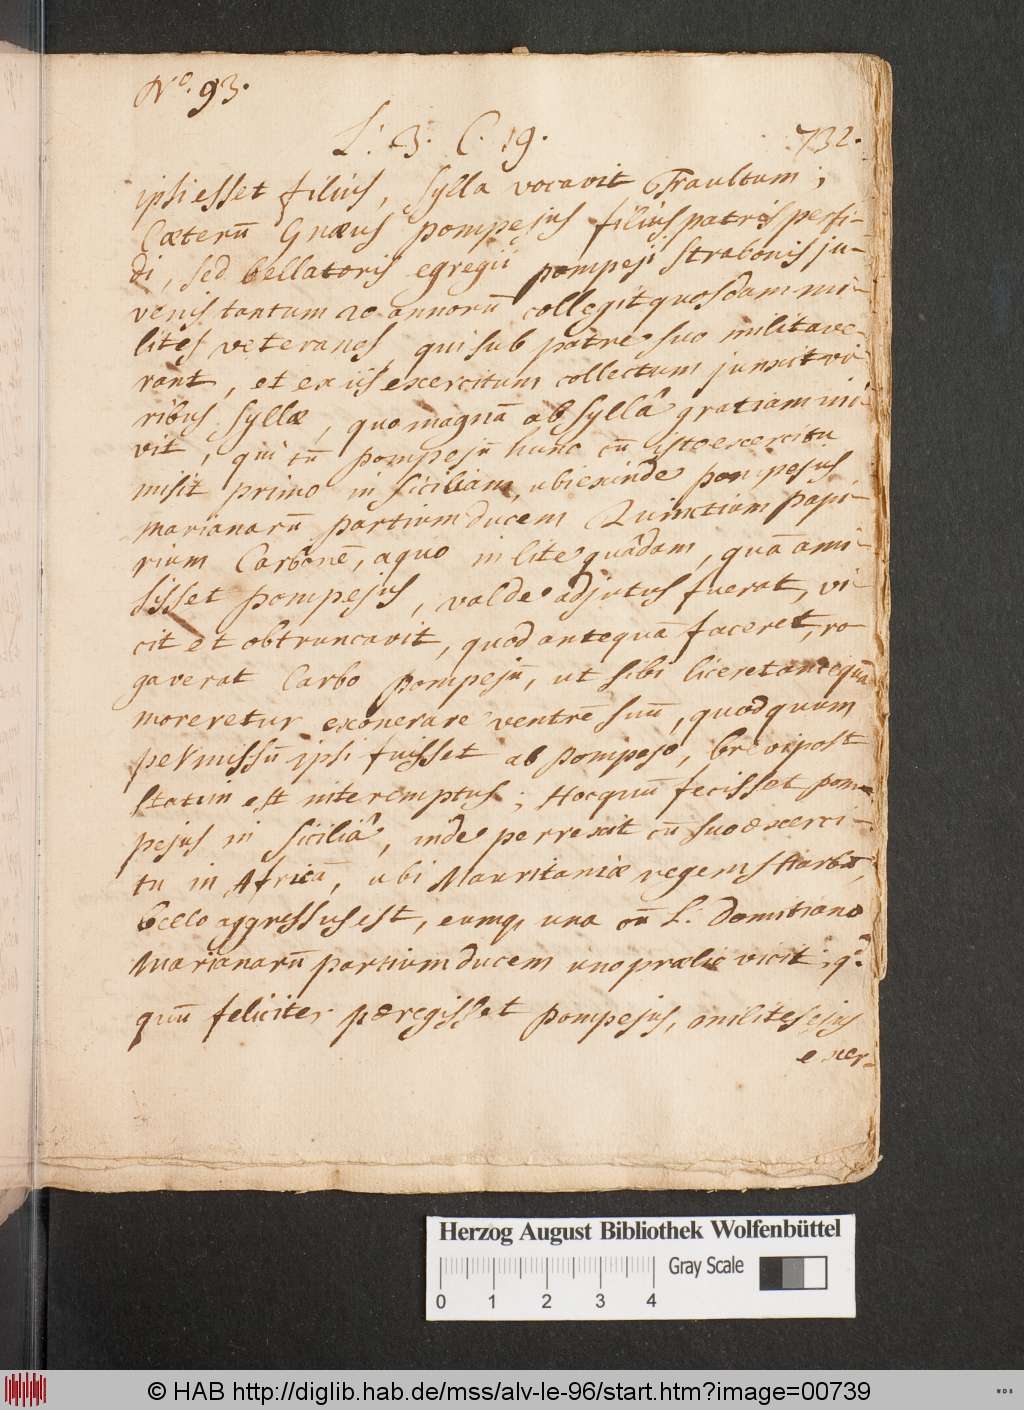 No. 93.
L. 3. C. 19. 732.
ipsi esset filius, Sylla vocavit Fraultum;
Cæterū Gnæus pompejus filius patris perfi-
di, sed bellatoris egregii pompeji Strabonis ju-
venis tantum 20 annorū collegit quosdam mi-
lites veteranos, qui sub patre suo militave-
rant, et ex iis exercitum collectum junxit vi-
ribus Syllæ, quo magnā ab Syllâ gratiam ini-
vit, qui tū pompejū hunc cū isto exercitu
misit primo in Siciliam, ubi exinde pompejus
marianarū partium ducem Quinctium papi-
rium Carbonē, a quo in lite quâdam, quā ami-
sisset pompejus, valde adjutus fuerat, vi-
cit et obtruncavit, quod antequā faceret, ro-
gaverat Carbo pompejū, ut sibi liceret antequā
moreretur exonerare ventrē suū, quod quum
permissū ipsi fuisset ab pompejo, brevi post
statim est interemptus; Hoc quū fecisset pom-
pejus in Siciliâ, inde perrexit cū suo exerci-
tu in Africā, ubi Mauritaniæ regem Hiarbā,
bello aggressus est, eumq, una cū L. Domitiano
Marianarū partium ducem uno prælio vicit; qd.
quū feliciter peregisset pompejus, milites ejus
exer-
Herzog August Bibliothek Wolfenbüttel
Gray Scale
0 1 2 3 4
© HAB http://diglib.hab.de/mss/alv-le-96/start.htm?image=00739